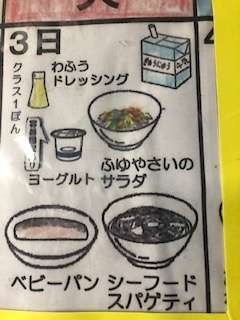 3日
ぎゅうにゅう
クラス1ぽん
わふう
ドレッシング
ヨーグルト
ふゆやさいの
サラダ
ベビーパン
シーフード
スパゲティ